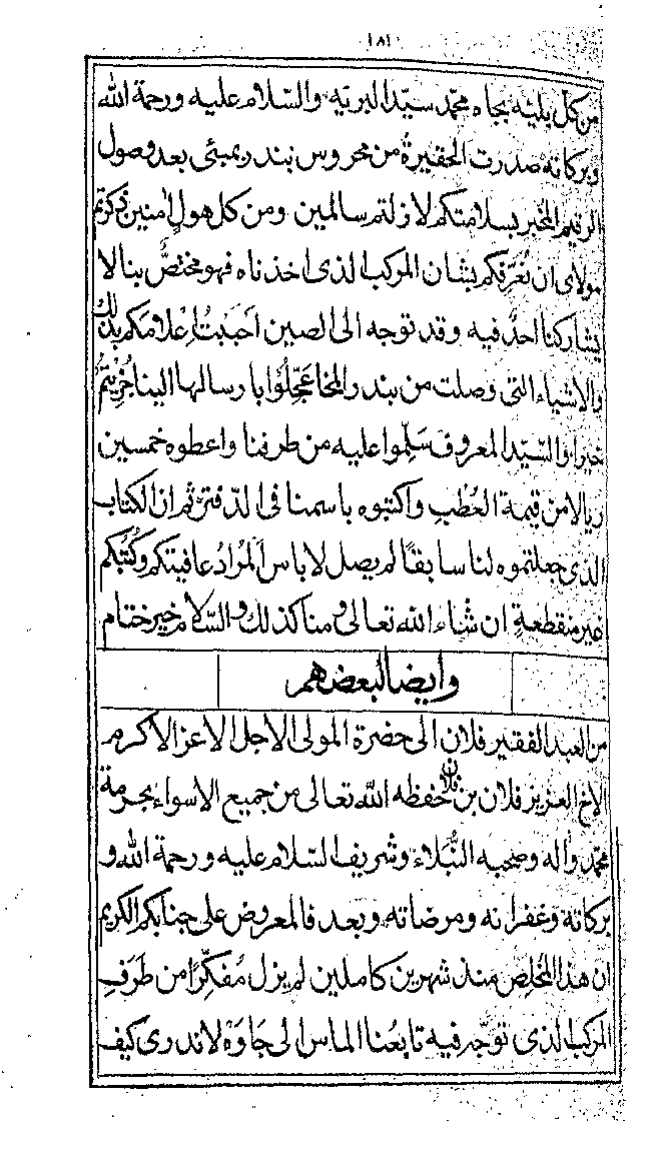 ١٨١
من كل بليه بجاه محمد سيد البريه والسلام عليه ورحمة الله
وبركاته صدرت الحقيرةُ من محروس بندر بمبئى بعد وصول
الرقيم المخبر بسلامتكم لازلتم سالمين ومن كل هولٍ آمنين ذكرتم
مولاى ان نُعَرّفكم بشان المركب الذى اخذناه فهو مختصٌّ بنا لا
يشاركنا احدٌ فيه وقد توجه الى الصين احببتُ اعلامكم بذلك
والاشياء التى وصلت من بندر المخا عَجِّلُوا بارسالها الينا جُزِيتُم
خيرا والسّيّد المعروف سَلِّموا عليه من طرفنا واعطوه خمسين
ريالا من قيمة العُطْبِ واكتبوه باسمنا فى الدّفتر ثم ان الكتاب
الذى جعلتموه لنا سابقًا لم يصل لا باس المُرادُ عافيتكم وكُتُبكم
غير منقطعةٍ ان شاء الله تعالى ومنا كذلك والسّلام خير ختام
وايضا لبعضهم
من العبد الفقير فلان الى حضرة المولى الاجل الاعز الاكرم
الاخ العزيز فلان بن فلان حفظه الله تعالى من جميع الاسواء بحرمة
محمّد واله وصحبه النُّبَلاء وشريف السّلام عليه ورحمة الله و
بركاته وغفرانه ومرضاته وبعد فالمعروض على جنابكم الكريم
ان هذا المُخلِص منذ شهرين كاملين لم يزل مُفكّرًا من طَرَفِ
المركب الذى توجّه فيه تابعُنا الماس الى جَاوَهْ لا ندرى كيف